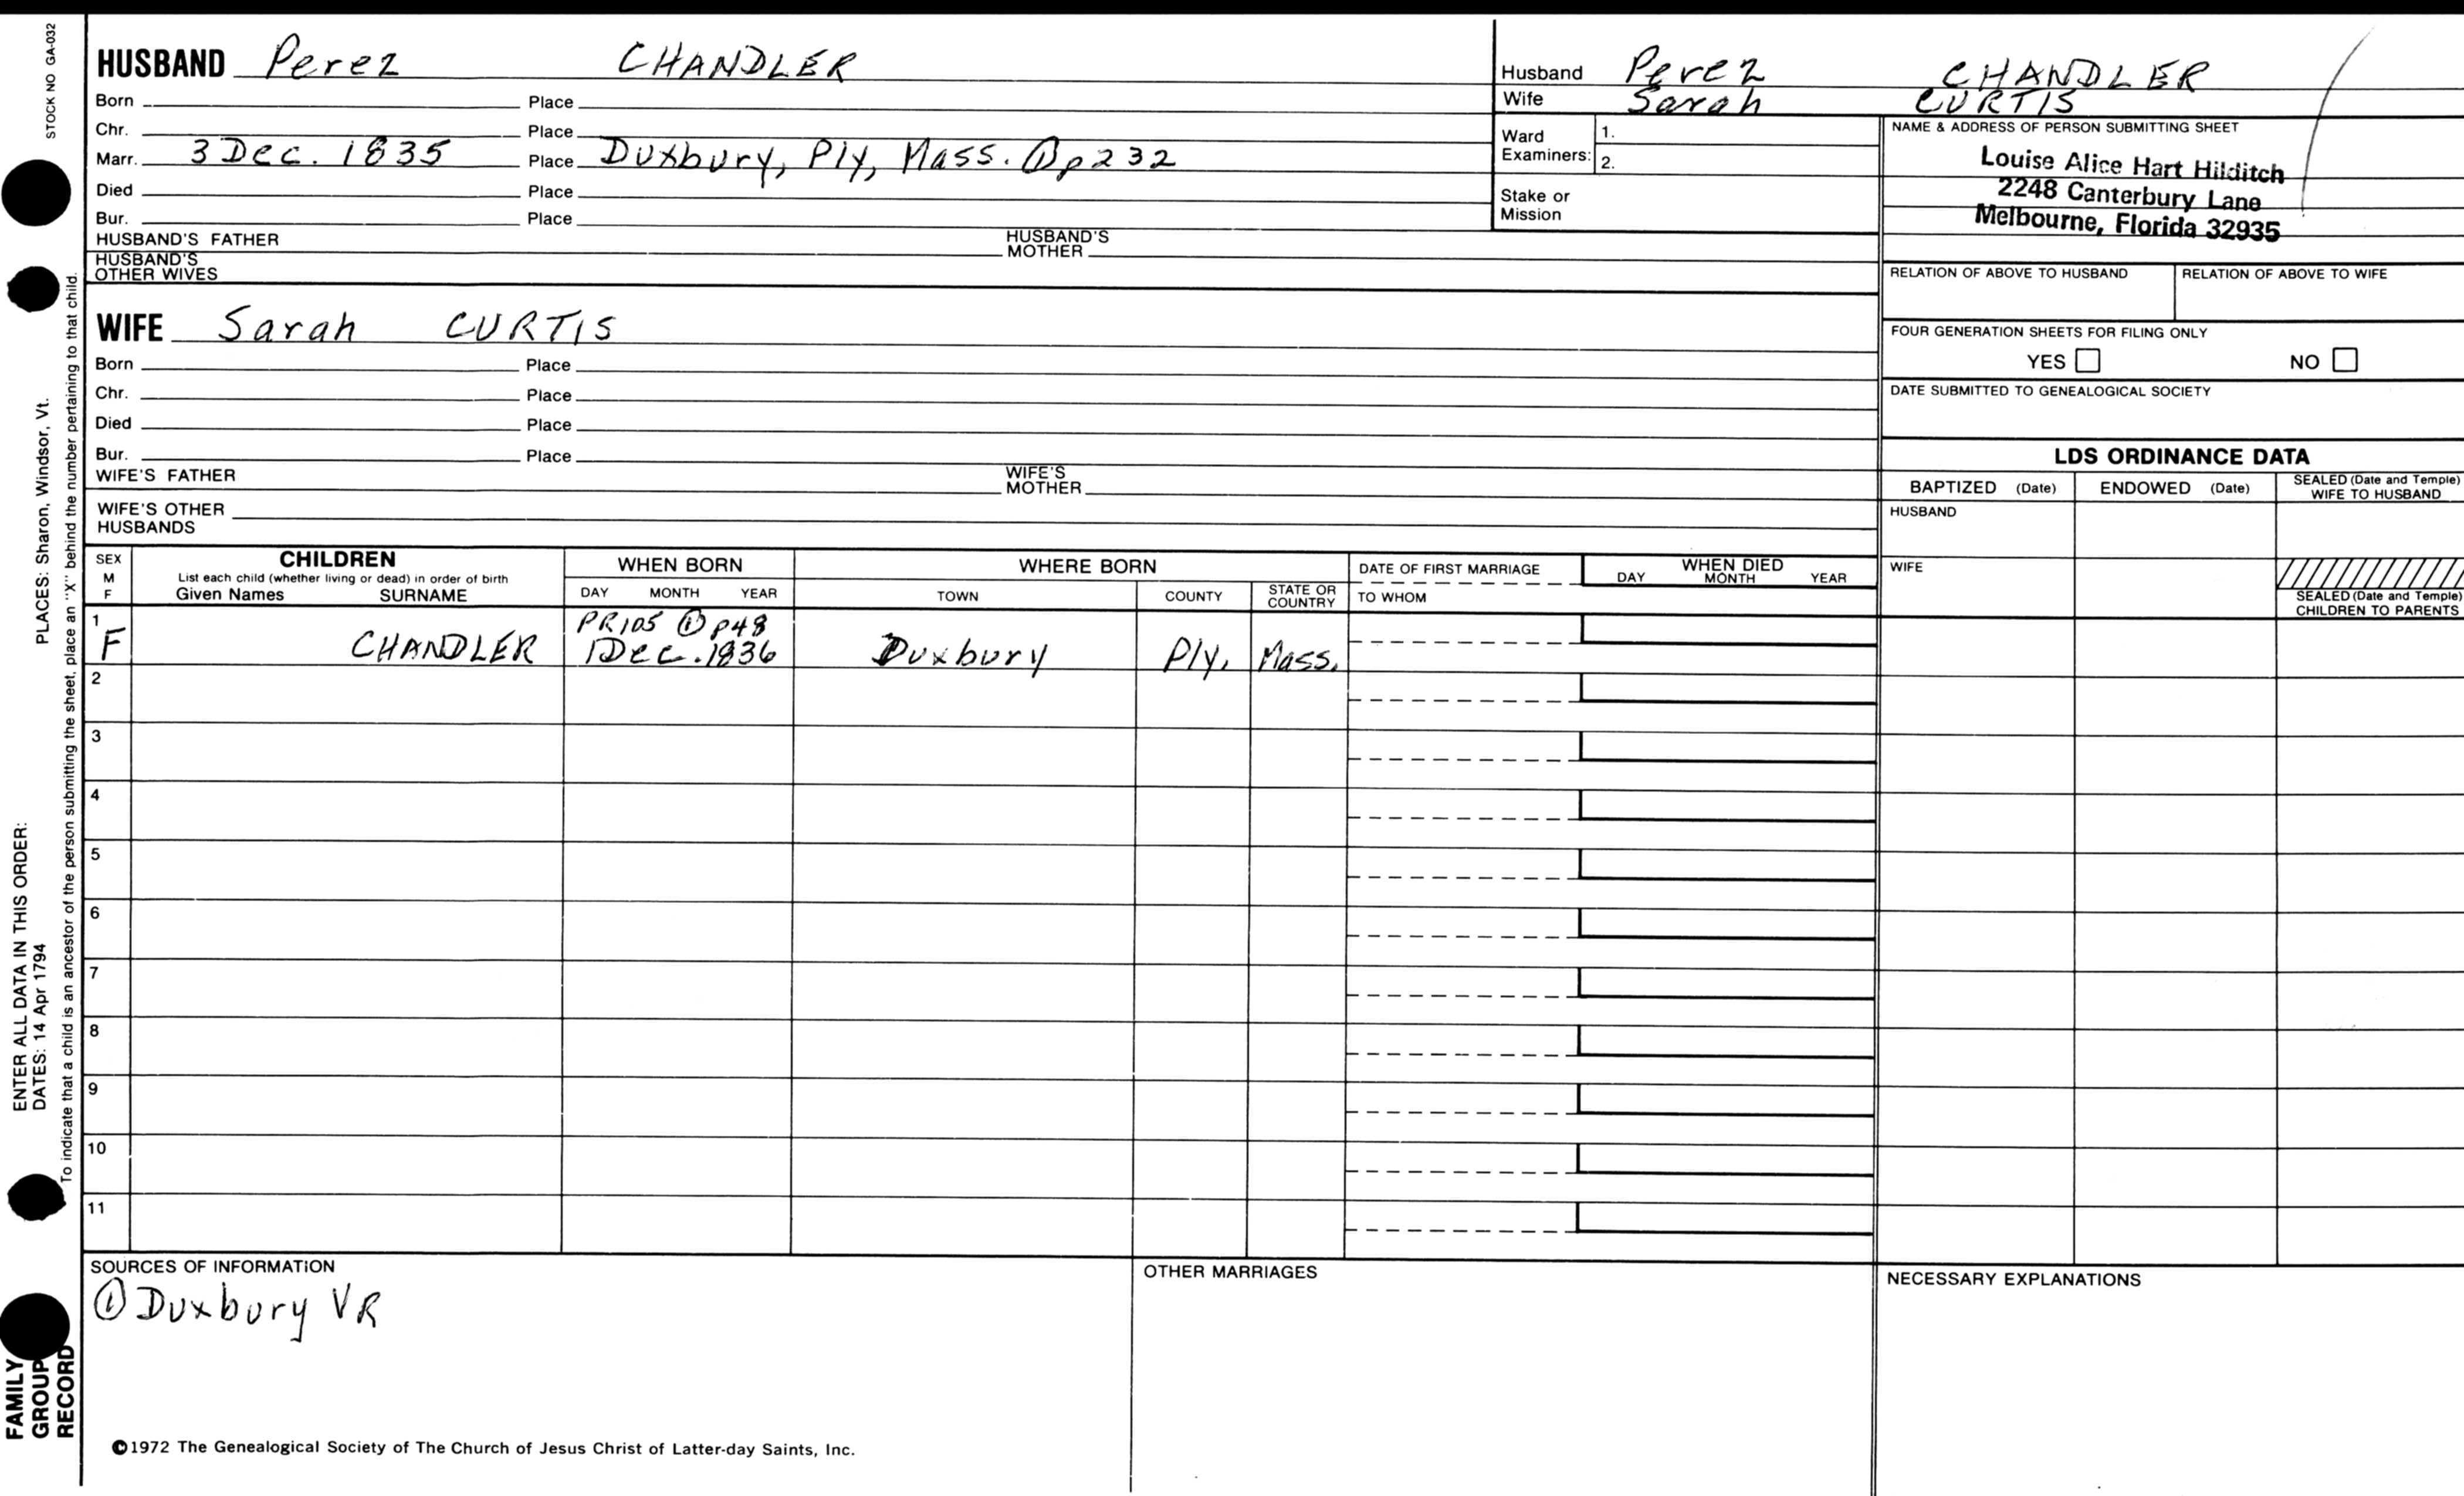 STOCK NO GA-032
HUSBAND Perez CHANDLER
Born Place
Chr. Place
Marr. 3 Dec. 1835 Place Duxbury, Ply, Mass. ① p 232
Died Place
Bur. Place
HUSBAND'S FATHER HUSBAND'S MOTHER
HUSBAND'S OTHER WIVES
Husband Perez CHANDLER
Wife Sarah CURTIS
Ward Examiners: 1.
2.
Stake or Mission
NAME & ADDRESS OF PERSON SUBMITTING SHEET
Louise Alice Hart Hilditch
2248 Canterbury Lane
Melbourne, Florida 32935
RELATION OF ABOVE TO HUSBAND RELATION OF ABOVE TO WIFE
FOUR GENERATION SHEETS FOR FILING ONLY
YES NO
DATE SUBMITTED TO GENEALOGICAL SOCIETY
WIFE Sarah CURTIS
Born Place
Chr. Place
Died Place
Bur. Place
WIFE'S FATHER WIFE'S MOTHER
WIFE'S OTHER HUSBANDS
LDS ORDINANCE DATA
BAPTIZED (Date) ENDOWED (Date) SEALED (Date and Temple) WIFE TO HUSBAND
HUSBAND
WIFE
SEALED (Date and Temple) CHILDREN TO PARENTS
SEX M F
CHILDREN
List each child (whether living or dead) in order of birth
Given Names SURNAME
WHEN BORN
DAY MONTH YEAR
WHERE BORN
TOWN COUNTY STATE OR COUNTRY
DATE OF FIRST MARRIAGE
TO WHOM
WHEN DIED
DAY MONTH YEAR
PR105 ① p48
1 F CHANDLER 1 Dec. 1836 Duxbury Ply. Mass.
2
3
4
5
6
7
8
9
10
11
SOURCES OF INFORMATION
① Duxbury VR
OTHER MARRIAGES
NECESSARY EXPLANATIONS
©1972 The Genealogical Society of The Church of Jesus Christ of Latter-day Saints, Inc.
FAMILY
GROUP
RECORD
ENTER ALL DATA IN THIS ORDER:
DATES: 14 Apr 1794 PLACES: Sharon, Windsor, Vt.
To indicate that a child is an ancestor of the person submitting the sheet, place an "X" behind the number pertaining to that child.